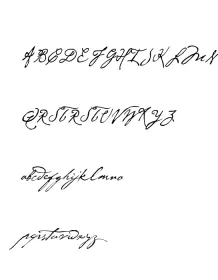 ABCDEFGHIJKLMN
QRSTRSTUVWXYZ
abcdefghijklmno
pqrstuvwxyz